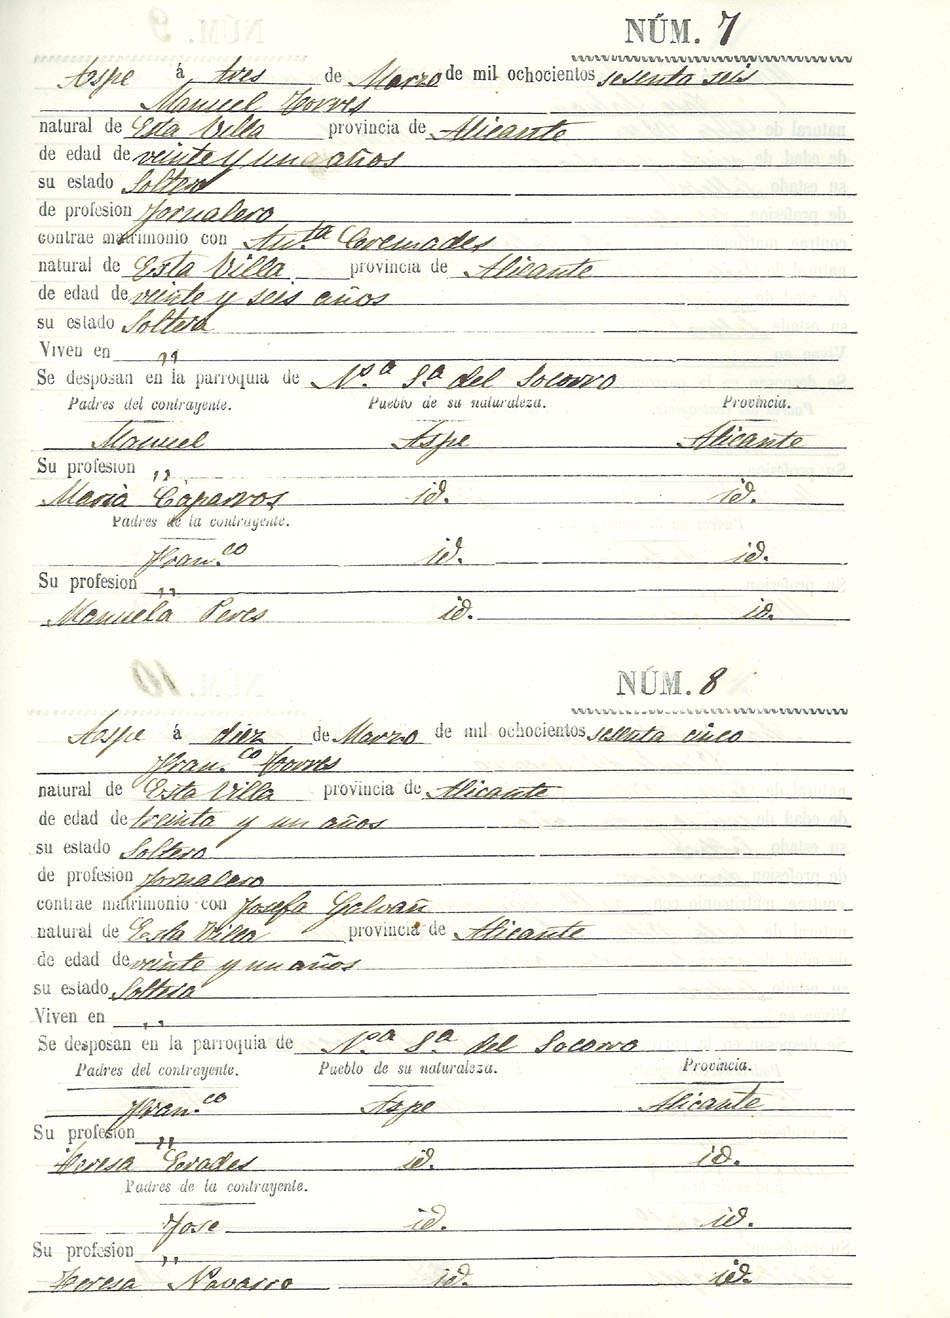 NÚM. 7
Aspe á tres de Marzo de mil ochocientos sesenta seis
Manuel Torres
natural de Esta Villa provincia de Alicante
de edad de veinte y un años
su estado Soltero
de profesion Jornalero
contrae matrimonio con An.ta Cremades
natural de Esta Villa provincia de Alicante
de edad de veinte y seis años
su estado Soltera
Viven en ,,
Se desposan en la parroquia de N.ª S.ª del Socorro
Padres del contrayente. Pueblo de su naturaleza. Provincia.
Manuel Aspe Alicante
Su profesion ,,
Maria Caparros id. id.
Padres de la contrayente.
Fran.co id. id.
Su profesion ,,
Manuela Peres id. id.
NÚM. 8
Aspe á diez de Marzo de mil ochocientos sesenta cinco
Fran.co Torres
natural de Esta Villa provincia de Alicante
de edad de treinta y un años
su estado Soltero
de profesion Jornalero
contrae matrimonio con Josefa Galvañ
natural de Esta Villa provincia de Alicante
de edad de veinte y un años
su estado Soltera
Viven en ,,
Se desposan en la parroquia de N.ª S.ª del Socorro
Padres del contrayente. Pueblo de su naturaleza. Provincia.
Fran.co Aspe Alicante
Su profesion ,,
Teresa Erades id. id.
Padres de la contrayente.
Jose id. id.
Su profesion ,,
Teresa Navarro id. id.